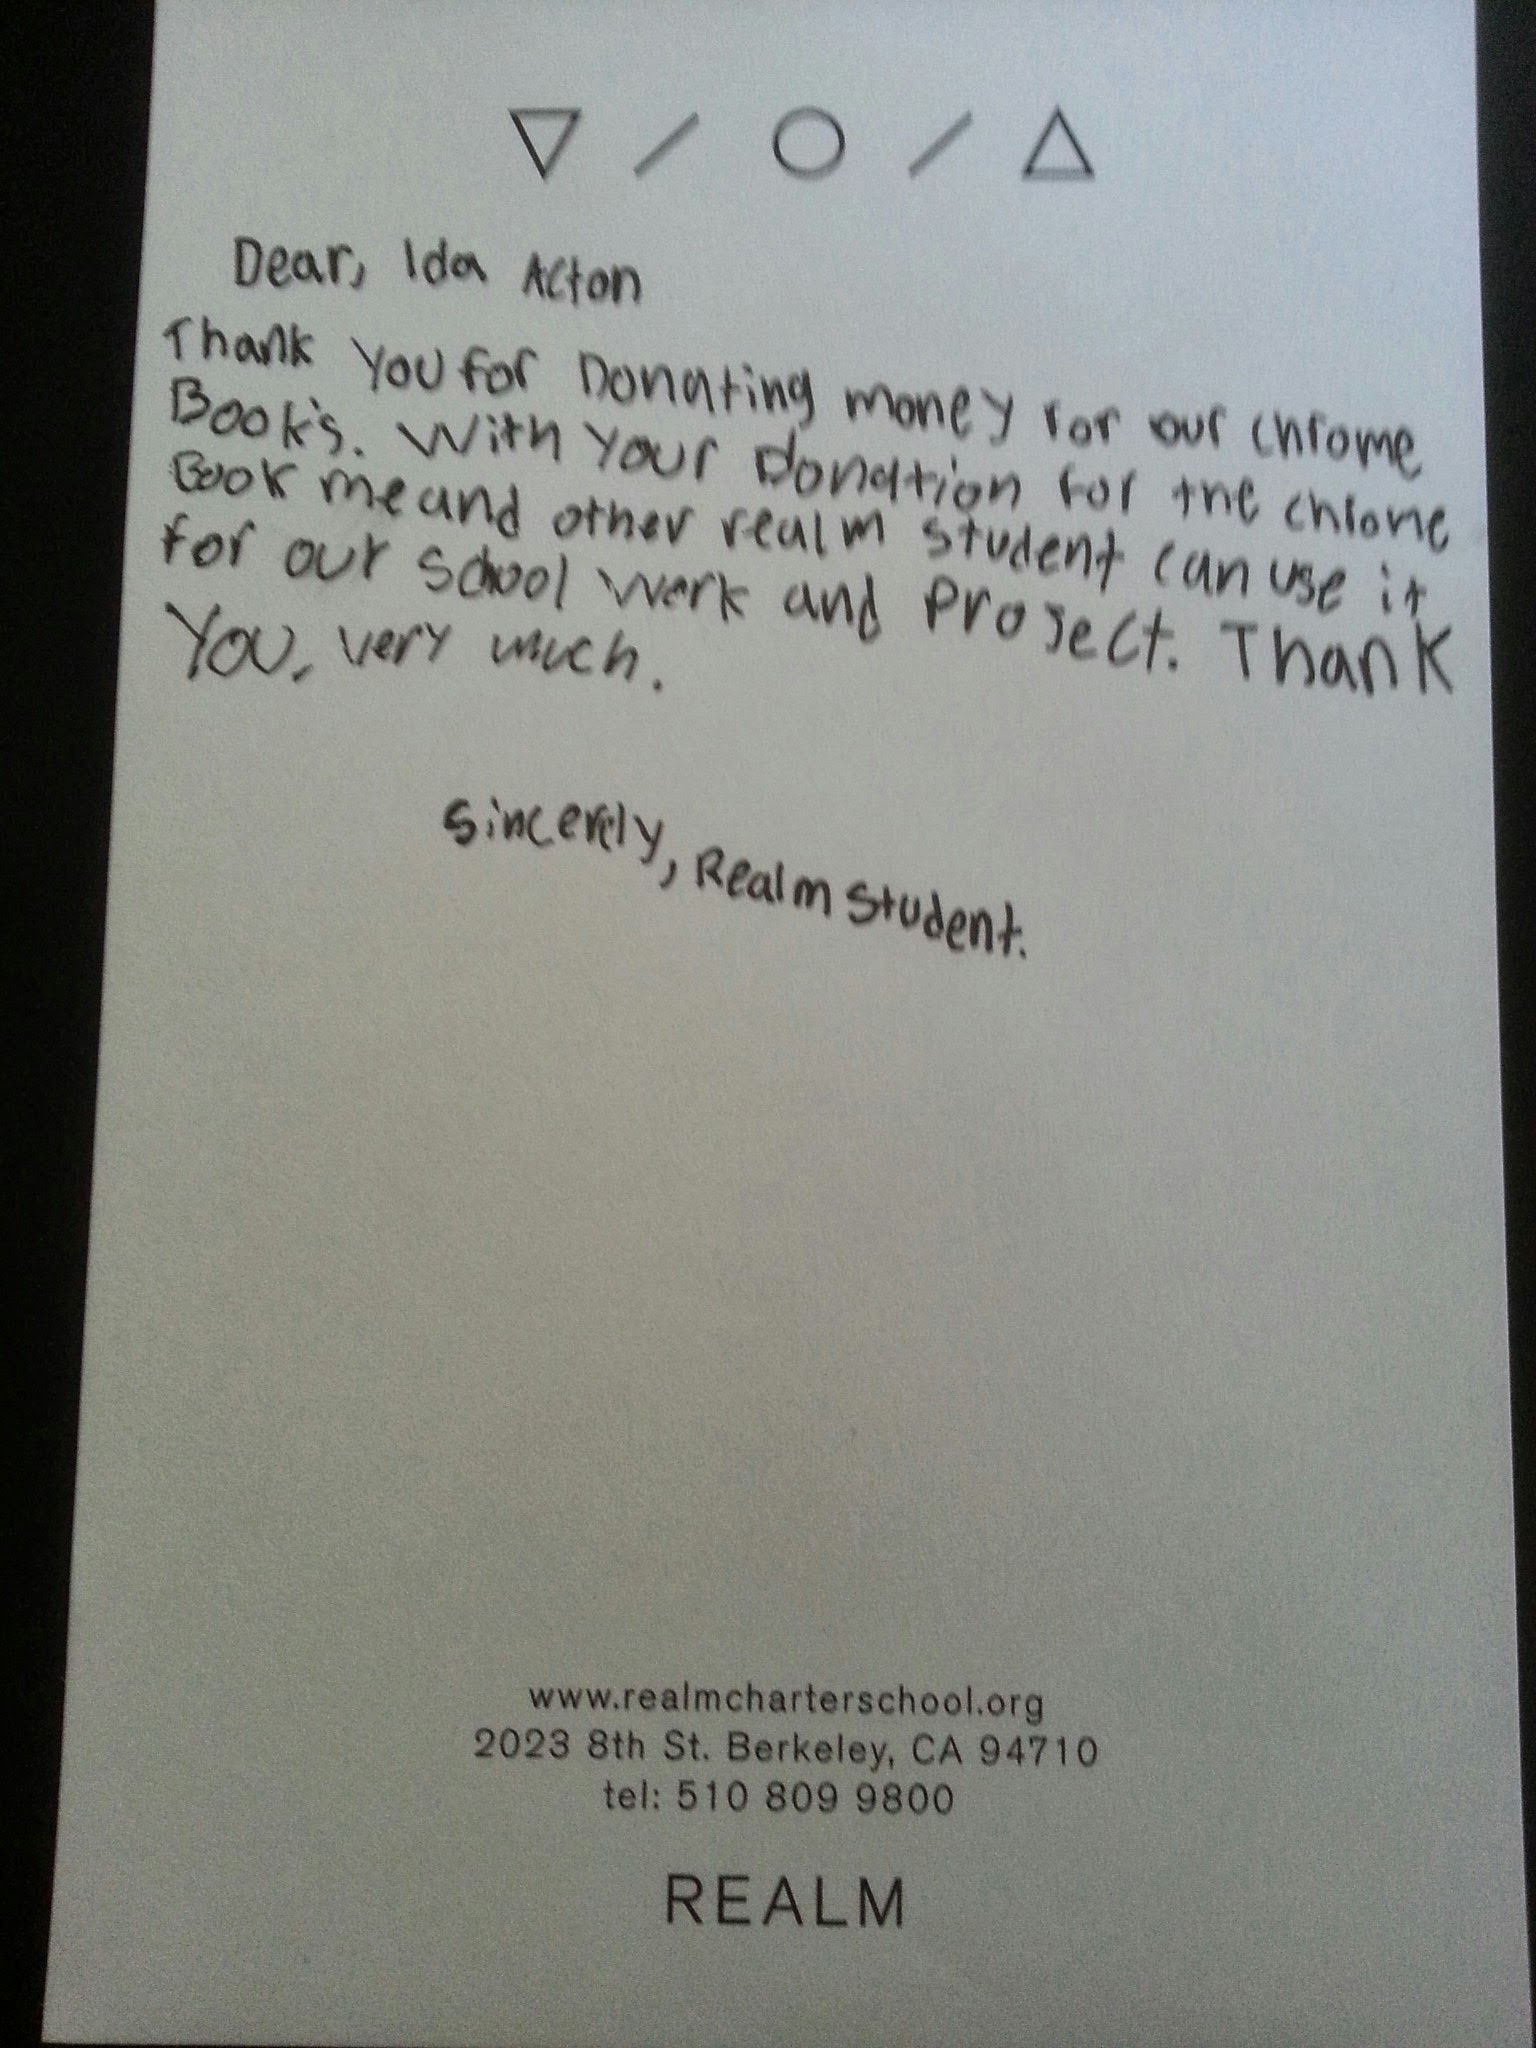 Dear, Ida Acton
Thank You for Donating money for our chrome
Book's. With Your Donation for the chrome
Book me and other realm student can use it
for our school werk and Project. Thank
You, very much.
Sincerely, Realm student.
www.realmcharterschool.org
2023 8th St. Berkeley, CA 94710
tel: 510 809 9800
REALM